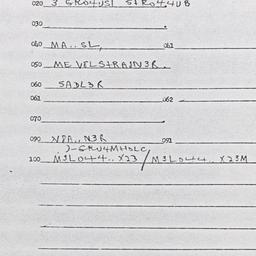 020 3 GRO4USI STRO44UB
030 .
040 MA.. SL, 041
050 ME VELSTRAIN3R.
060 SADL3R
061 062
070
090 NPA.. N3R 091
)-GRU4MHOLC
100 M3LO44.. X23 / M3LO44.. X23M